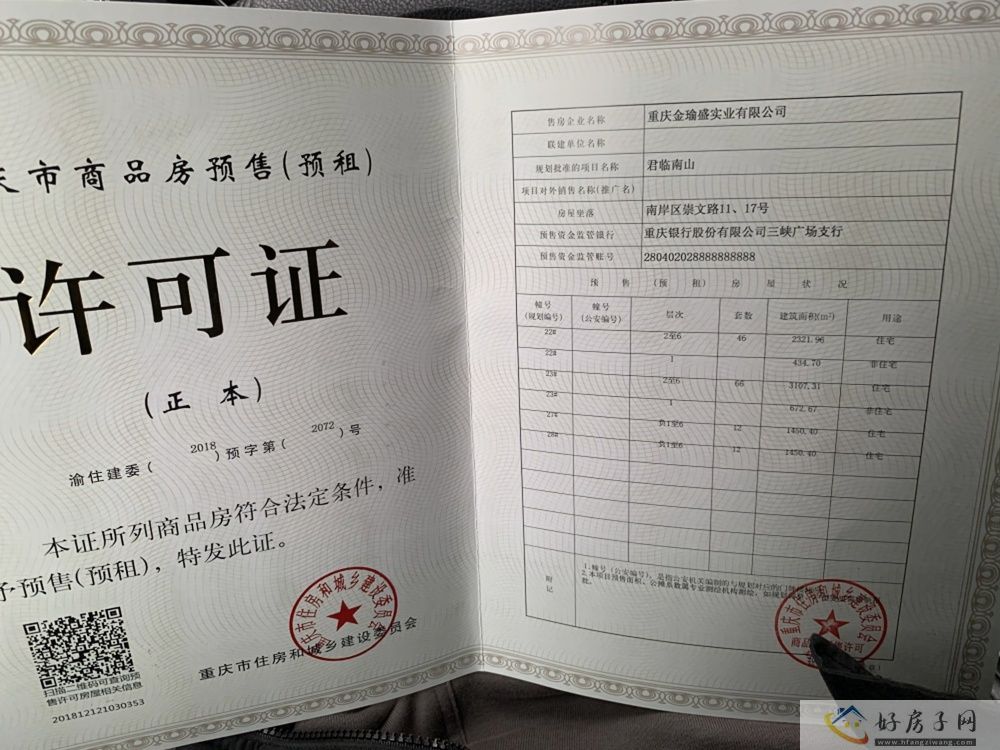 庆市商品房预售(预租)
许可证
(正 本)
渝住建委(2018)预字第(2072)号
本证所列商品房符合法定条件,准
予预售(预租),特发此证。
重庆市住房和城乡建设委员会
重庆市住房和城乡建设委员会
扫描二维码可查询预
售许可房屋相关信息
201812121030353
售房企业名称 重庆金瑜盛实业有限公司
联建单位名称
规划批准的项目名称 君临南山
项目对外销售名称(推广名)
房屋坐落 南岸区崇文路11、17号
预售资金监管银行 重庆银行股份有限公司三峡广场支行
预售资金监管账号 280402028888888888
预 售 (预 租) 房 屋 状 况
幢号(规划编号) 幢号(公安编号) 层次 套数 建筑面积(m²) 用途
22# 2至6 46 2321.96 住宅
22# 1 434.70 非住宅
23# 2至6 66 3107.31 住宅
23# 1 672.67 非住宅
27# 负1至6 12 1450.40 住宅
28# 负1至6 12 1450.40 住宅
附记
1.幢号(公安编号),是指公安机关编制的与规划对应的门牌
2.本项目预售面积、公摊系数属专业测绘机构测绘,如规划
批,
重庆市住房和城乡建设委员会
好房子网
www.hfangziwang.com